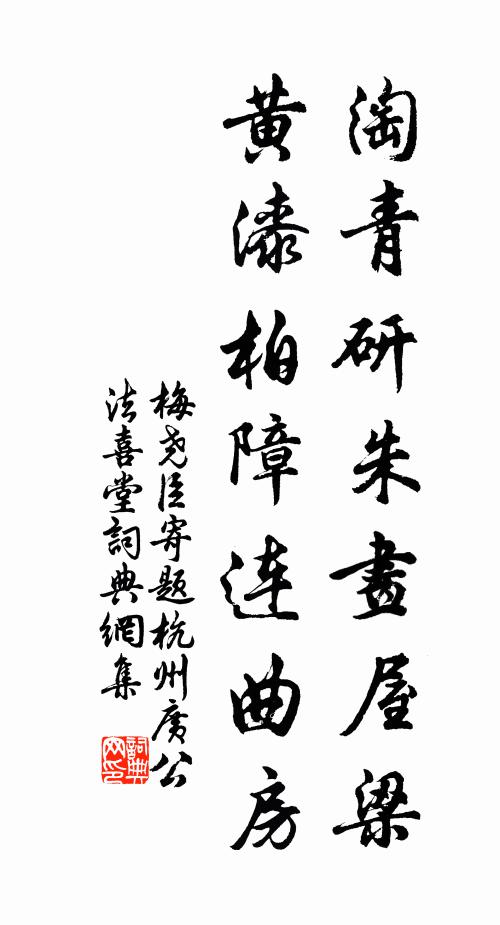 淘青研朱畫屋梁
黃漆柏障連曲房
梅尧臣寄题杭州廣公
法喜堂詞典網集
詞典网印